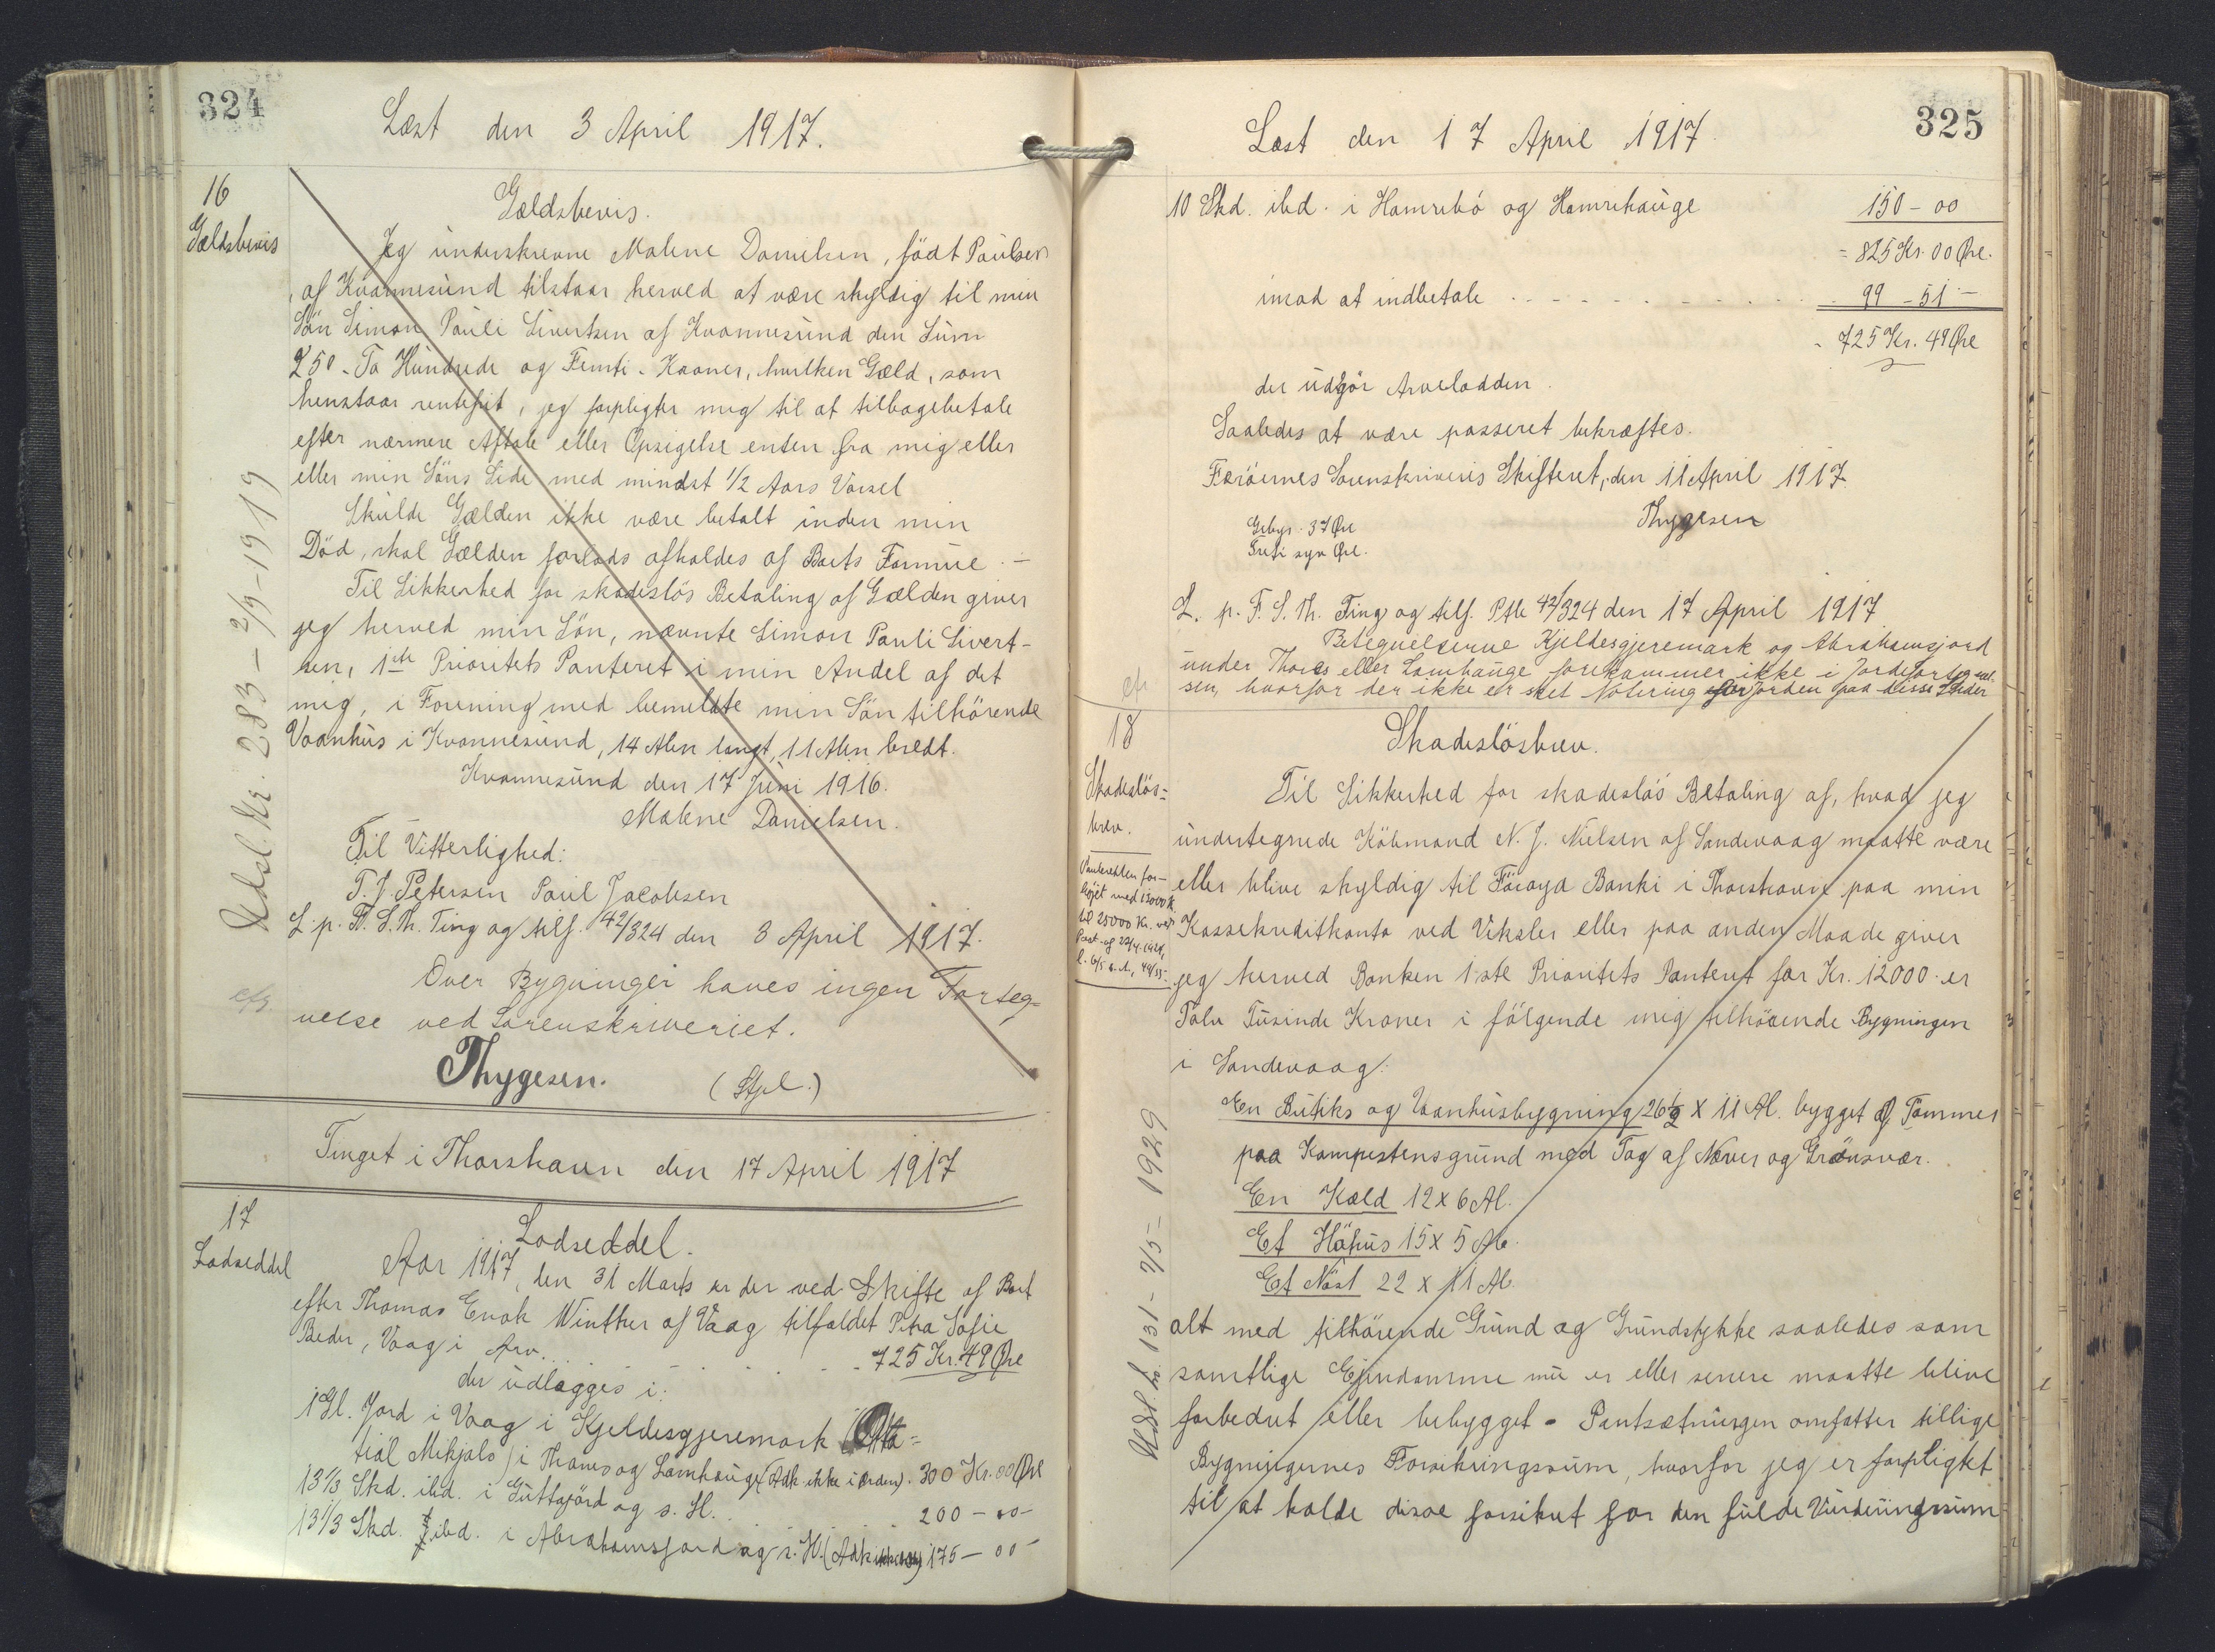 324
Læst den 3 April 1917.
16
Gældsbevis
Gældsbevis.
Jeg underskrevne Malene Danielsen, født Poulsen
af Kvannesund tilstaar herved at være skyldig til min
Sön Simon Pauli Sivertsen af Kvannesund den Sum
250 - To Hundrede og Femti - Kroner, hvilken Gæld, som
henstaar rentefrit, jeg forpligter mig til at tilbagebetale
efter nærmere Aftale eller Opsigelse enten fra mig eller
eller min Söns Side med mindst 1/2 Aars Varsel
Skulde Gælden ikke være betalt inden min
Död, skal Gælden forlods afholdes af Boets Formue. -
Til Sikkerhed for skadeslös Betaling af Gælden giver
jeg herved min Sön, nævnte Simon Pauli Sivert-
sen, 1ste Prioritets Panteret i min Andel af det
mig, i Forening med bemeldte min Sön tilhörende
Vaanhus i Kvannesund, 14 Alen langt, 11 Alen bredt.
Kvannesund den 17 Juni 1916.
Malene Danielsen.
Til Vitterlighed:
T. J. Petersen Poul Jacobsen
L. p. F. S. Th. Ting og tilf. 42/324 den 3 April 1917.
Over Bygninger haves ingen Forteg-
nelse ved Sorenskriveriet.
Thygesen. (Stpl.)
Udsl. Nr. 283 - 2/9 - 1919
Tinget i Thorshavn den 17 April 1917
17
Lodseddel
Lodseddel.
Aar 1917, den 31 Marts er der ved Skifte af Boet
efter Thomas Enok Winther af Vaag tilfaldet Petra Sofie
Beder, Vaag i Arv. . . . 725 Kr. 49 Öre
der udlægges i:
1 Gl. Jord i Vaag i Kjeldesgjeremark (Otta=
tial Mikjals) i Thomes og Lamhauge (Adk. ikke i Orden). 300 Kr. 00 Öre
13 1/3 Skd. ibd. i Guttajörd og s. H. . 200 - 00 -
13 1/3 Skd. ibd. i Abrahamsjord og s. H. (Adk 175 - 00 -
325
Læst den 17 April 1917.
10 Skd. ibd. i Hamrebö og Hamrehauge 150 - 00
= 825 Kr. 00 Öre.
imod at indbetale . . . . 99 - 51 -
725 Kr. 49 Öre
der udgör Arvelodden.
Saaledes at være passeret bekræftes.
Færöernes Sorenskriveris Skifteret, den 11 April 1917.
Gebyr. 37 Öre
Treti syv Öre.
Thygesen
L. p. F. S. Th. Ting og tilf. Ptb 42/324 den 17 April 1917
Betegnelserne Kjeldesgjeremark og Abrahamsjord
under Thomes eller Lamhauge forekommer ikke i Jordefortegnel-
sen, hvorfor der ikke er sket Notering for Jorden paa disse Steder
18
Skadeslös=
brev.
Panteretten for-
höjet med 13000 K
til 25000 Kr. ved
Paat. af 22/4. 1921,
l. 6/5 s. A., 44/55.
Skadeslösbrev.
Til Sikkerhed for skadeslös Betaling af, hvad jeg
undertegnede Köbmand N. J. Nielsen af Sandevaag maatte være
eller blive skyldig til Föroya Banki i Thorshavn paa min
Kassekreditkonto ved Veksler eller paa anden Maade giver
jeg herved Banken 1ste Prioritets Panteret for Kr. 12000 er
Tolv Tusinde Kroner i fölgende mig tilhörende Bygningen
i Sandevaag:
En Butiks og Vaanhusbygning 26 1/2 x 11 Al. bygget af Tommer
paa Kampestensgrund med Tag af Næver og Grönsvær.
En Kæld 12 x 6 Al.
Et Höhus 15 x 5 Al.
Et Nöst 22 x 11 Al.
alt med tilhörende Grund og Grundstykke saaledes som
samtlige Ejendomme nu er eller senere maatte blive
forbedret eller bebygget - Pantsætningen omfatter tillige
Bygningernes Forsikringssum, hvorfor jeg er forpligtet
til at holde disse forsikret for den fulde Vurderingssum
Udsl. No 131 - 2/5 - 1929